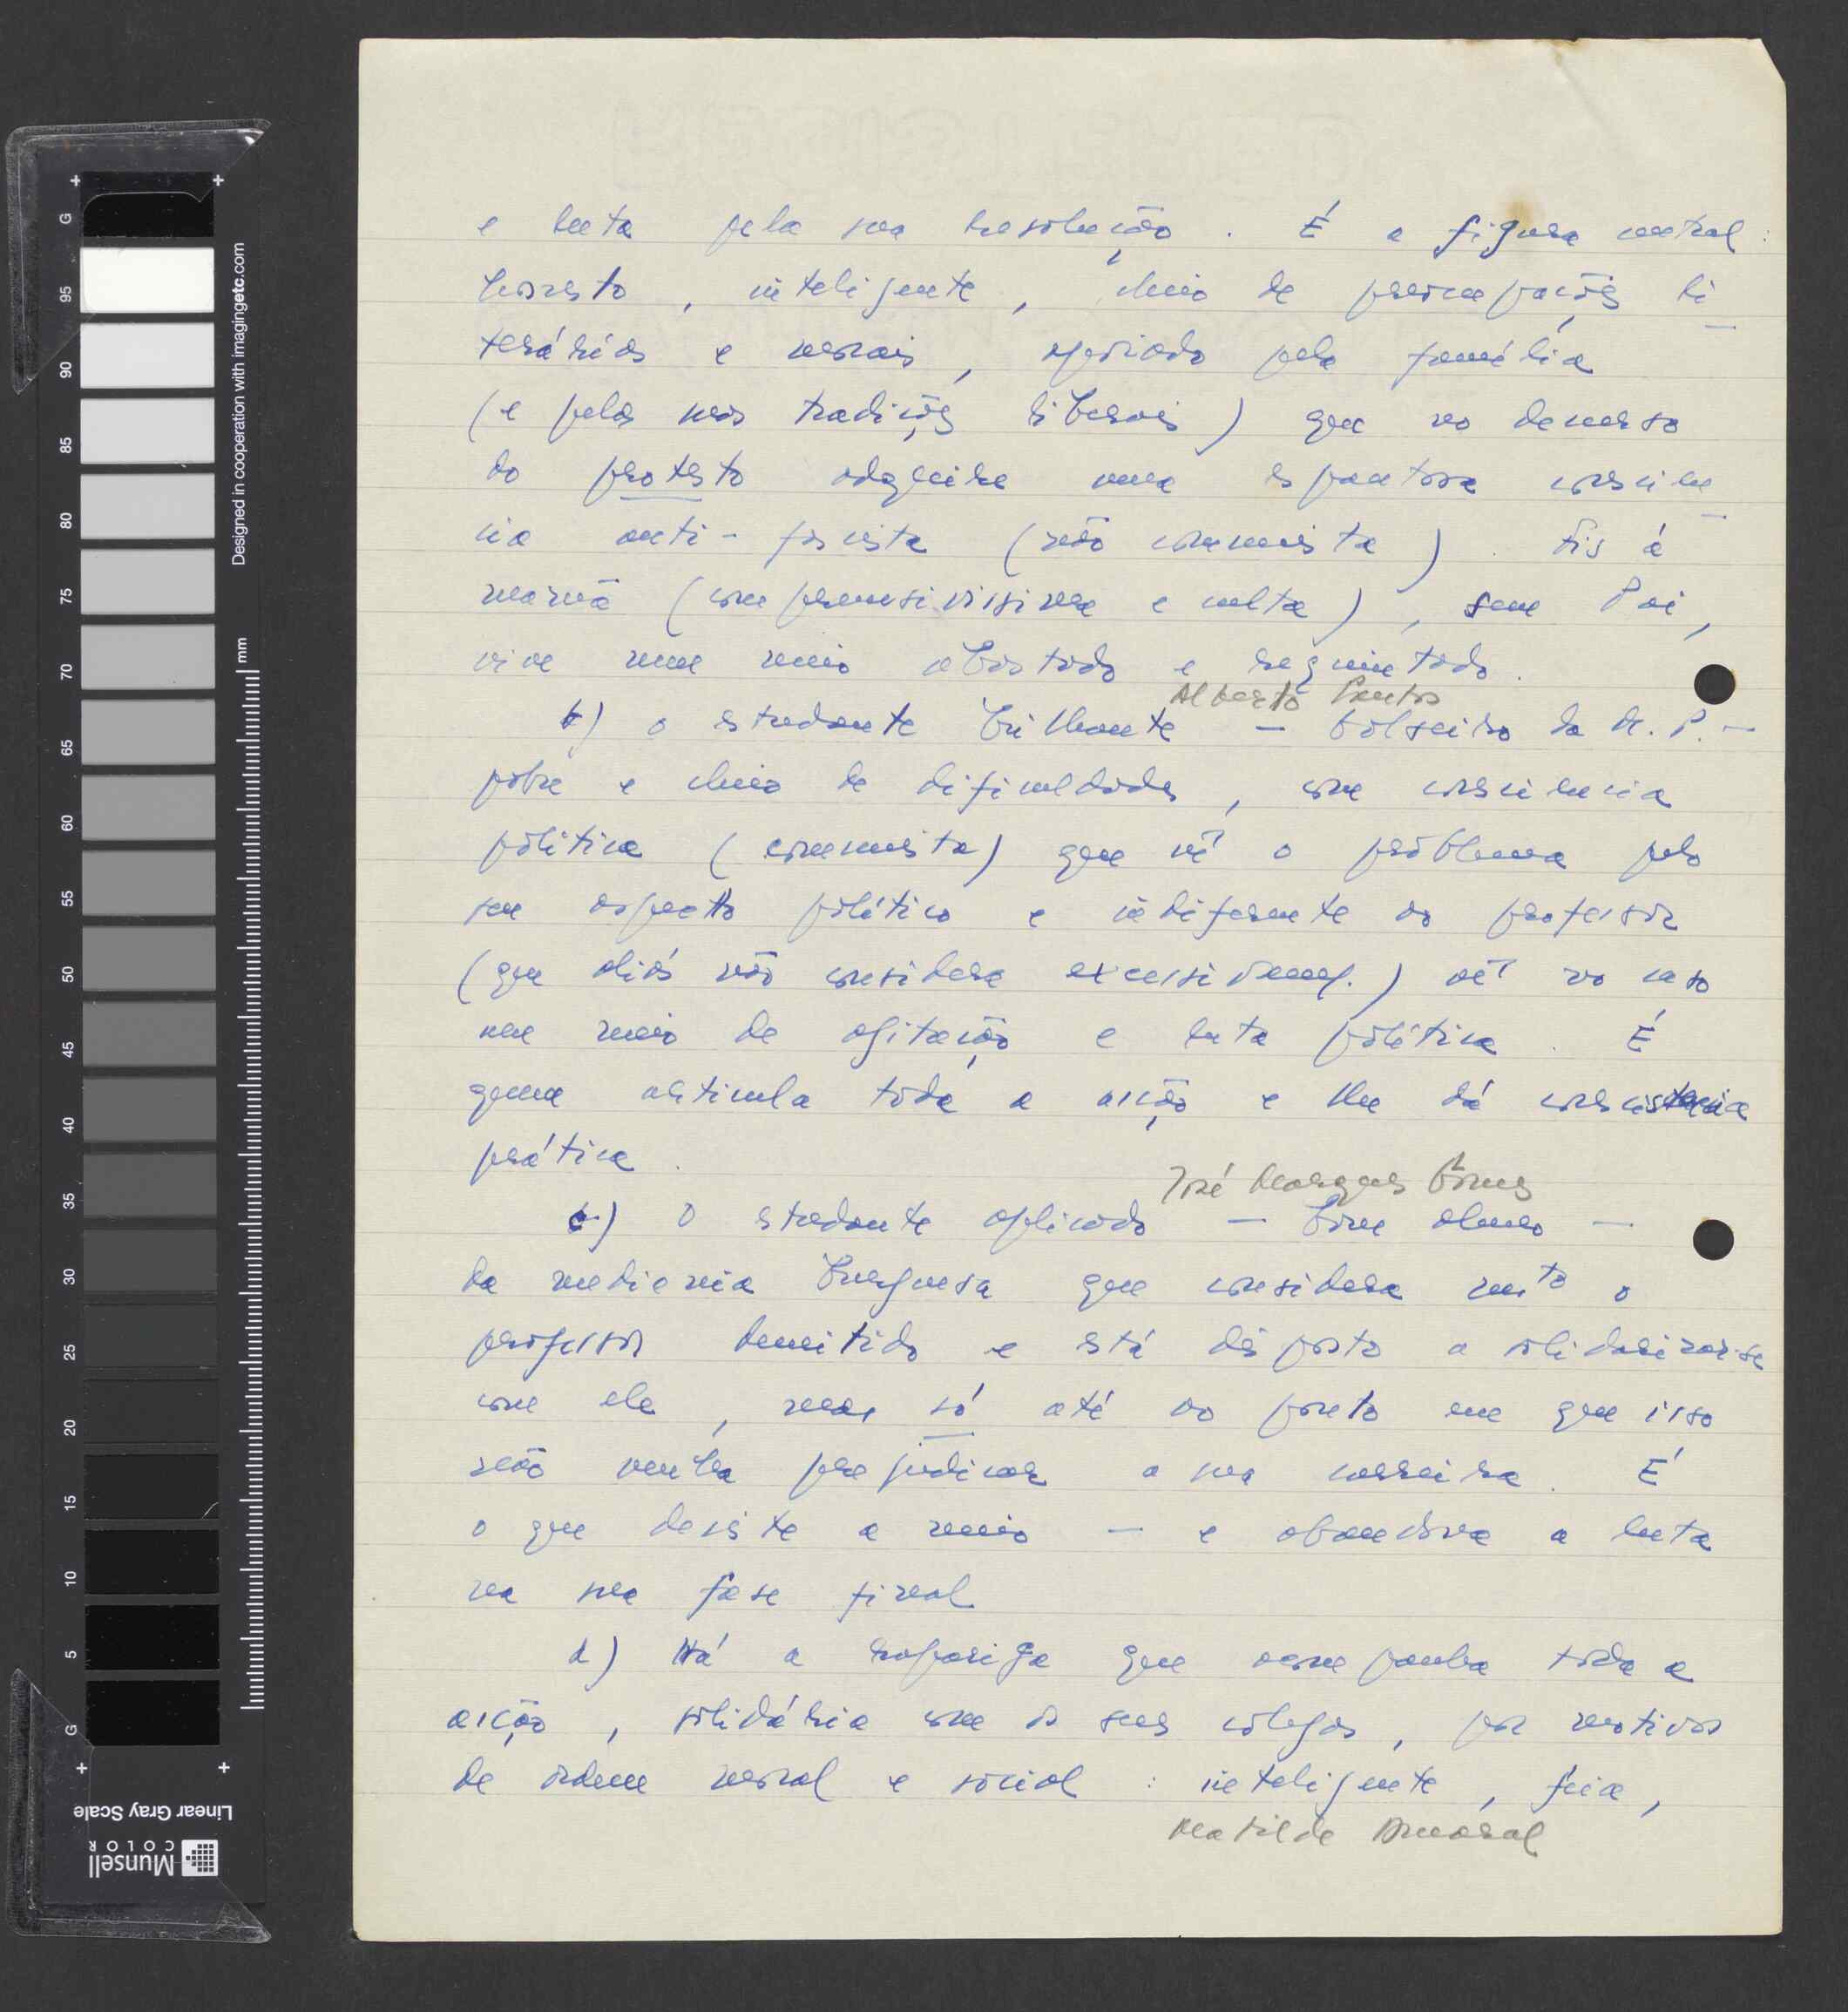 e luta pela sua resolução. É a figura central:
honesto, inteligente, cheio de preocupações li-
terárias e morais, apoiado pela família
(e pelas suas tradições liberais) que no decurso
do protesto adquire uma espantosa consciên-
cia anti-fascista (não comunista). Fis à
mamã (compreensivíssima e culta), sem Pai,
vive num meio abastado e requintado.
Alberto Santos
b) o estudante brilhante — bolseiro da M. P. —
pobre e cheio de dificuldades, com consciencia
politica (comunista) que vê o problema pelo
seu aspecto político e indiferente ao professor
(que aliás não considera excessivam.) vê no caso
um meio de agitação e luta política. É
quem articula toda a acção e lhe dá consistencia
prática.
José Marques Gomes
c) O estudante aplicado — bom aluno —
da mediania burguesa que considera mto o
professor demitido e está disposto a solidarizar-se
com ele, mas só até ao ponto em que isso
não venha prejudicar a sua carreira. É
o que desiste a meio — e abandona a luta
na sua fase final
d) Há a rapariga que acompanha toda a
acção, solidária com os seus colegas, por motivos
de ordem moral e social: inteligente, feia,
Matilde Amaral
Designed in cooperation with imagingetc.com
mm
G 95 90 85 80 75 70 65 60 55 50 45 40 35 30 25 20 15 10 5 G
Linear Gray Scale
Munsell
COLOR